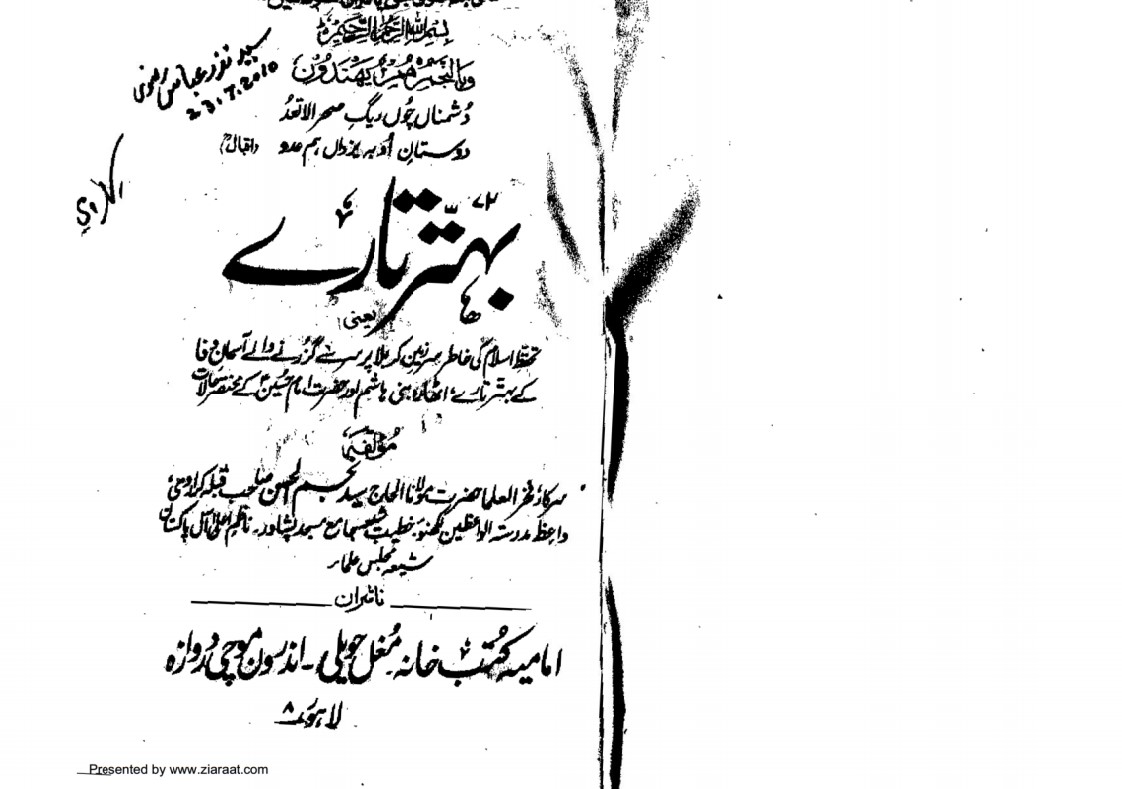 بِسْمِ اللهِ الرَّحْمٰنِ الرَّحِيْمِ
وَبِالنَّجْمِ هُمْ يَهْتَدُوْنَ
سید نذر عباس رضوی
23.7.2010
دُشمناں چُوں ریگِ صحرا لاتعدُ
دوستانِ اُو بہ یزداں ہم عدو (اقبالؒ)
۷۲
بہتّر تارے
یعنی
تحفظِ اسلام کی خاطر سرزمینِ کربلا پر سر سے گزرنے والے آسمانِ وفا
کے بہتّر تارے، اٹھارہ بنی ہاشم اور حضرت امام حُسینؑ کے مختصر حالات
مُؤلّفہ
سرکار فخر العلما حضرت مولانا الحاج سید نجم الحسن صاحب قبلہ کراروی
واعظ مدرستہ الواعظین لکھنؤ خطیب شیعہ جامع مسجد پشاور۔ ناظمِ اعلیٰ آل پاکستان
شیعہ مجلس علماء
ناشران
امامیہ کُتب خانہ مُغل حویلی۔ اندرون موچی دروازہ
لاہور ۸
Presented by www.ziaraat.com